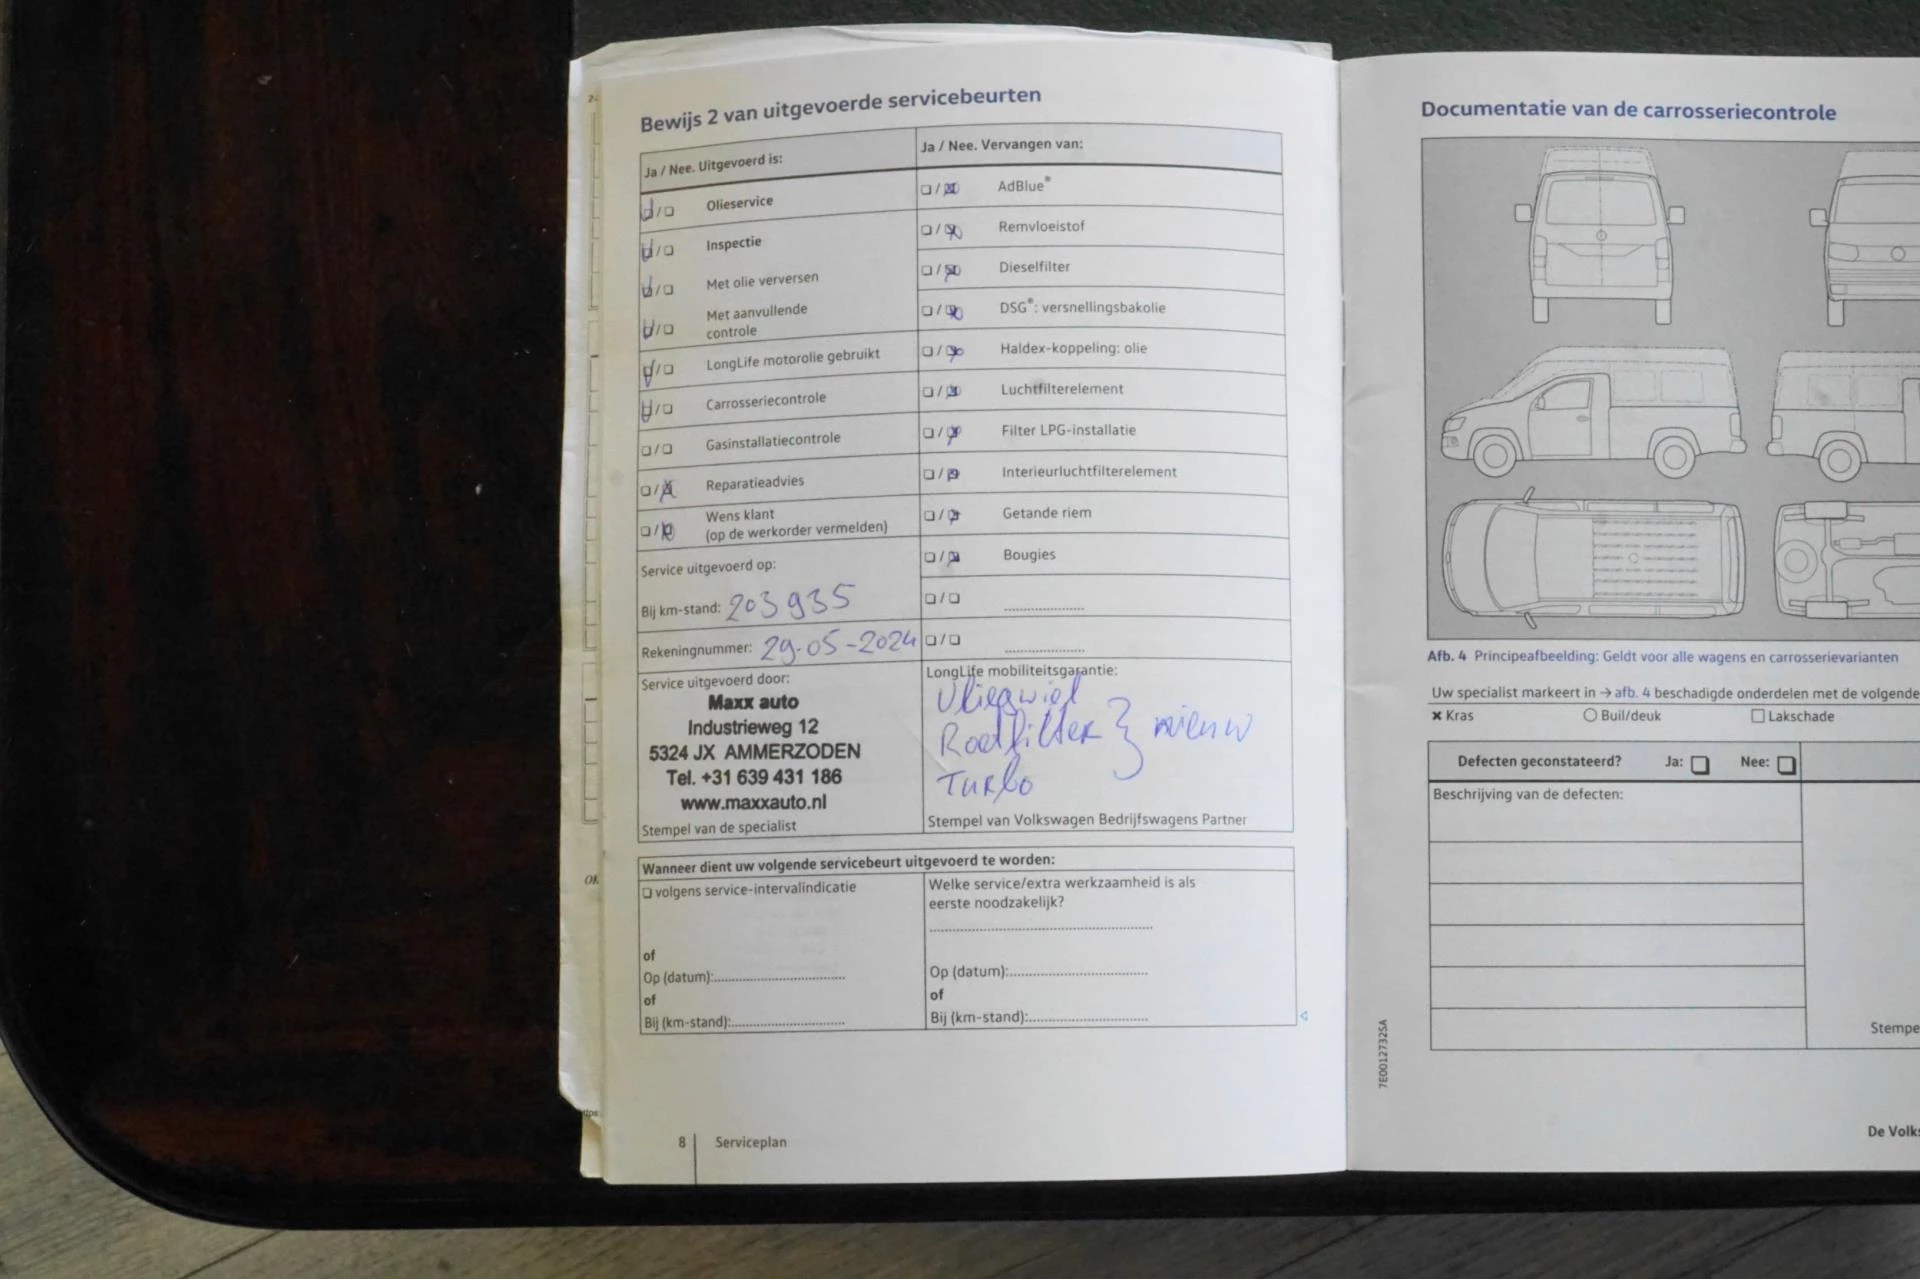 Bewijs 2 van uitgevoerde servicebeurten
Ja / Nee. Uitgevoerd is:
Olieservice
Inspectie
Met olie verversen
Met aanvullende
controle
LongLife motorolie gebruikt
Carrosseriecontrole
Gasinstallatiecontrole
Reparatieadvies
Wens klant
(op de werkorder vermelden)
Service uitgevoerd op:
Bij km-stand: 203935
Rekeningnummer: 29-05-2024
Service uitgevoerd door:
Maxx auto
Industrieweg 12
5324 JX AMMERZODEN
Tel. +31 639 431 186
www.maxxauto.nl
Stempel van de specialist
Ja / Nee. Vervangen van:
AdBlue®
Remvloeistof
Dieselfilter
DSG®: versnellingsbakolie
Haldex-koppeling: olie
Luchtfilterelement
Filter LPG-installatie
Interieurluchtfilterelement
Getande riem
Bougies
LongLife mobiliteitsgarantie:
Vliegwiel
Roetfilter } nieuw
Turbo
Stempel van Volkswagen Bedrijfswagens Partner
Wanneer dient uw volgende servicebeurt uitgevoerd te worden:
volgens service-intervalindicatie
of
Op (datum):
of
Bij (km-stand):
Welke service/extra werkzaamheid is als
eerste noodzakelijk?
Op (datum):
of
Bij (km-stand):
8 Serviceplan
Documentatie van de carrosseriecontrole
Afb. 4 Principeafbeelding: Geldt voor alle wagens en carrosserievarianten
Uw specialist markeert in → afb. 4 beschadigde onderdelen met de volgende
Kras Buil/deuk Lakschade
Defecten geconstateerd? Ja: Nee:
Beschrijving van de defecten:
Stempe
7E0012732SA
De Volks